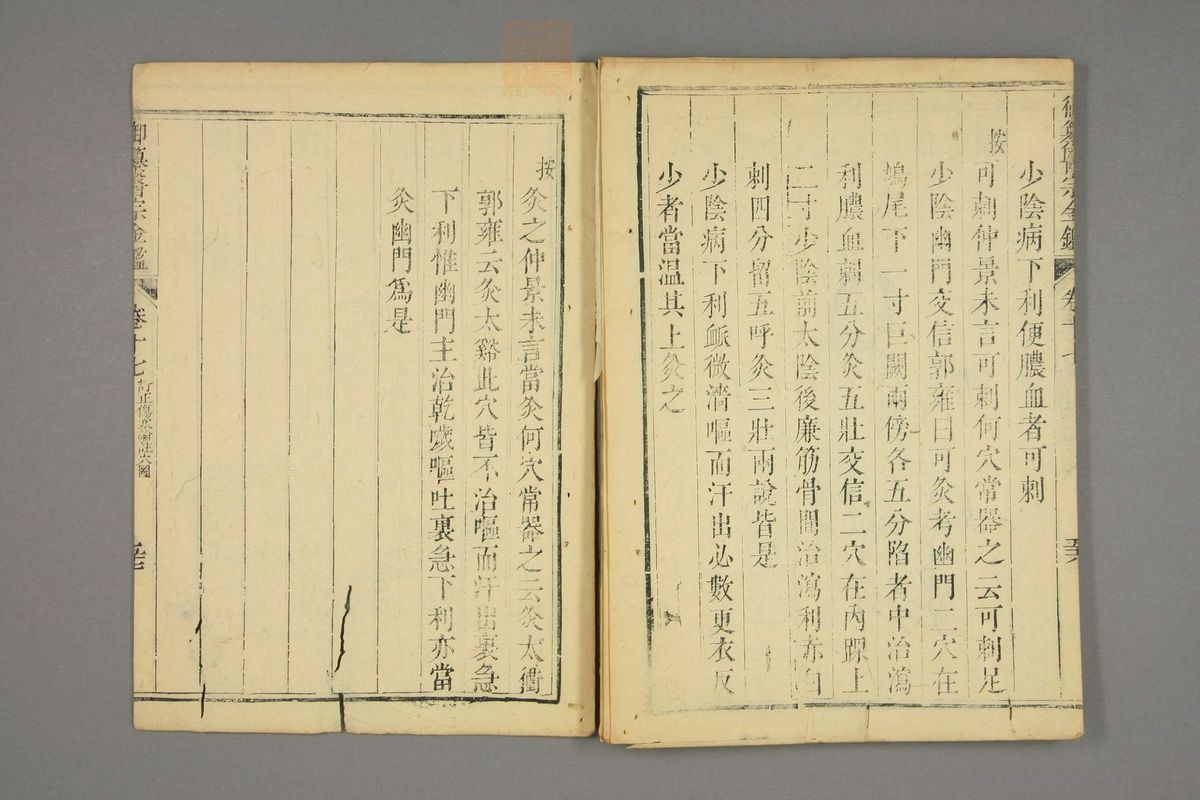 御纂醫宗金鑑
卷十七
少陰病下利便膿血者可刺
按
可刺仲景未言可刺何穴常器之云可刺足
少陰幽門交信郭雍曰可灸考幽門二穴在
鳩尾下一寸巨闕兩傍各五分陷者中治瀉
利膿血刺五分灸五壯交信二穴在內踝上
二寸少陰前太陰後廉筋骨間治瀉利赤白
刺四分留五呼灸三壯兩說皆是
少陰病下利脈微濇嘔而汗出必數更衣反
少者當溫其上灸之
按
灸之仲景未言當灸何穴常器之云灸太衝
郭雍云灸太谿此穴皆不治嘔而汗出裏急
下利惟幽門主治乾噦嘔吐裏急下利亦當
灸幽門爲是
御纂醫宗金鑑
卷十七
訂正傷寒論註六國